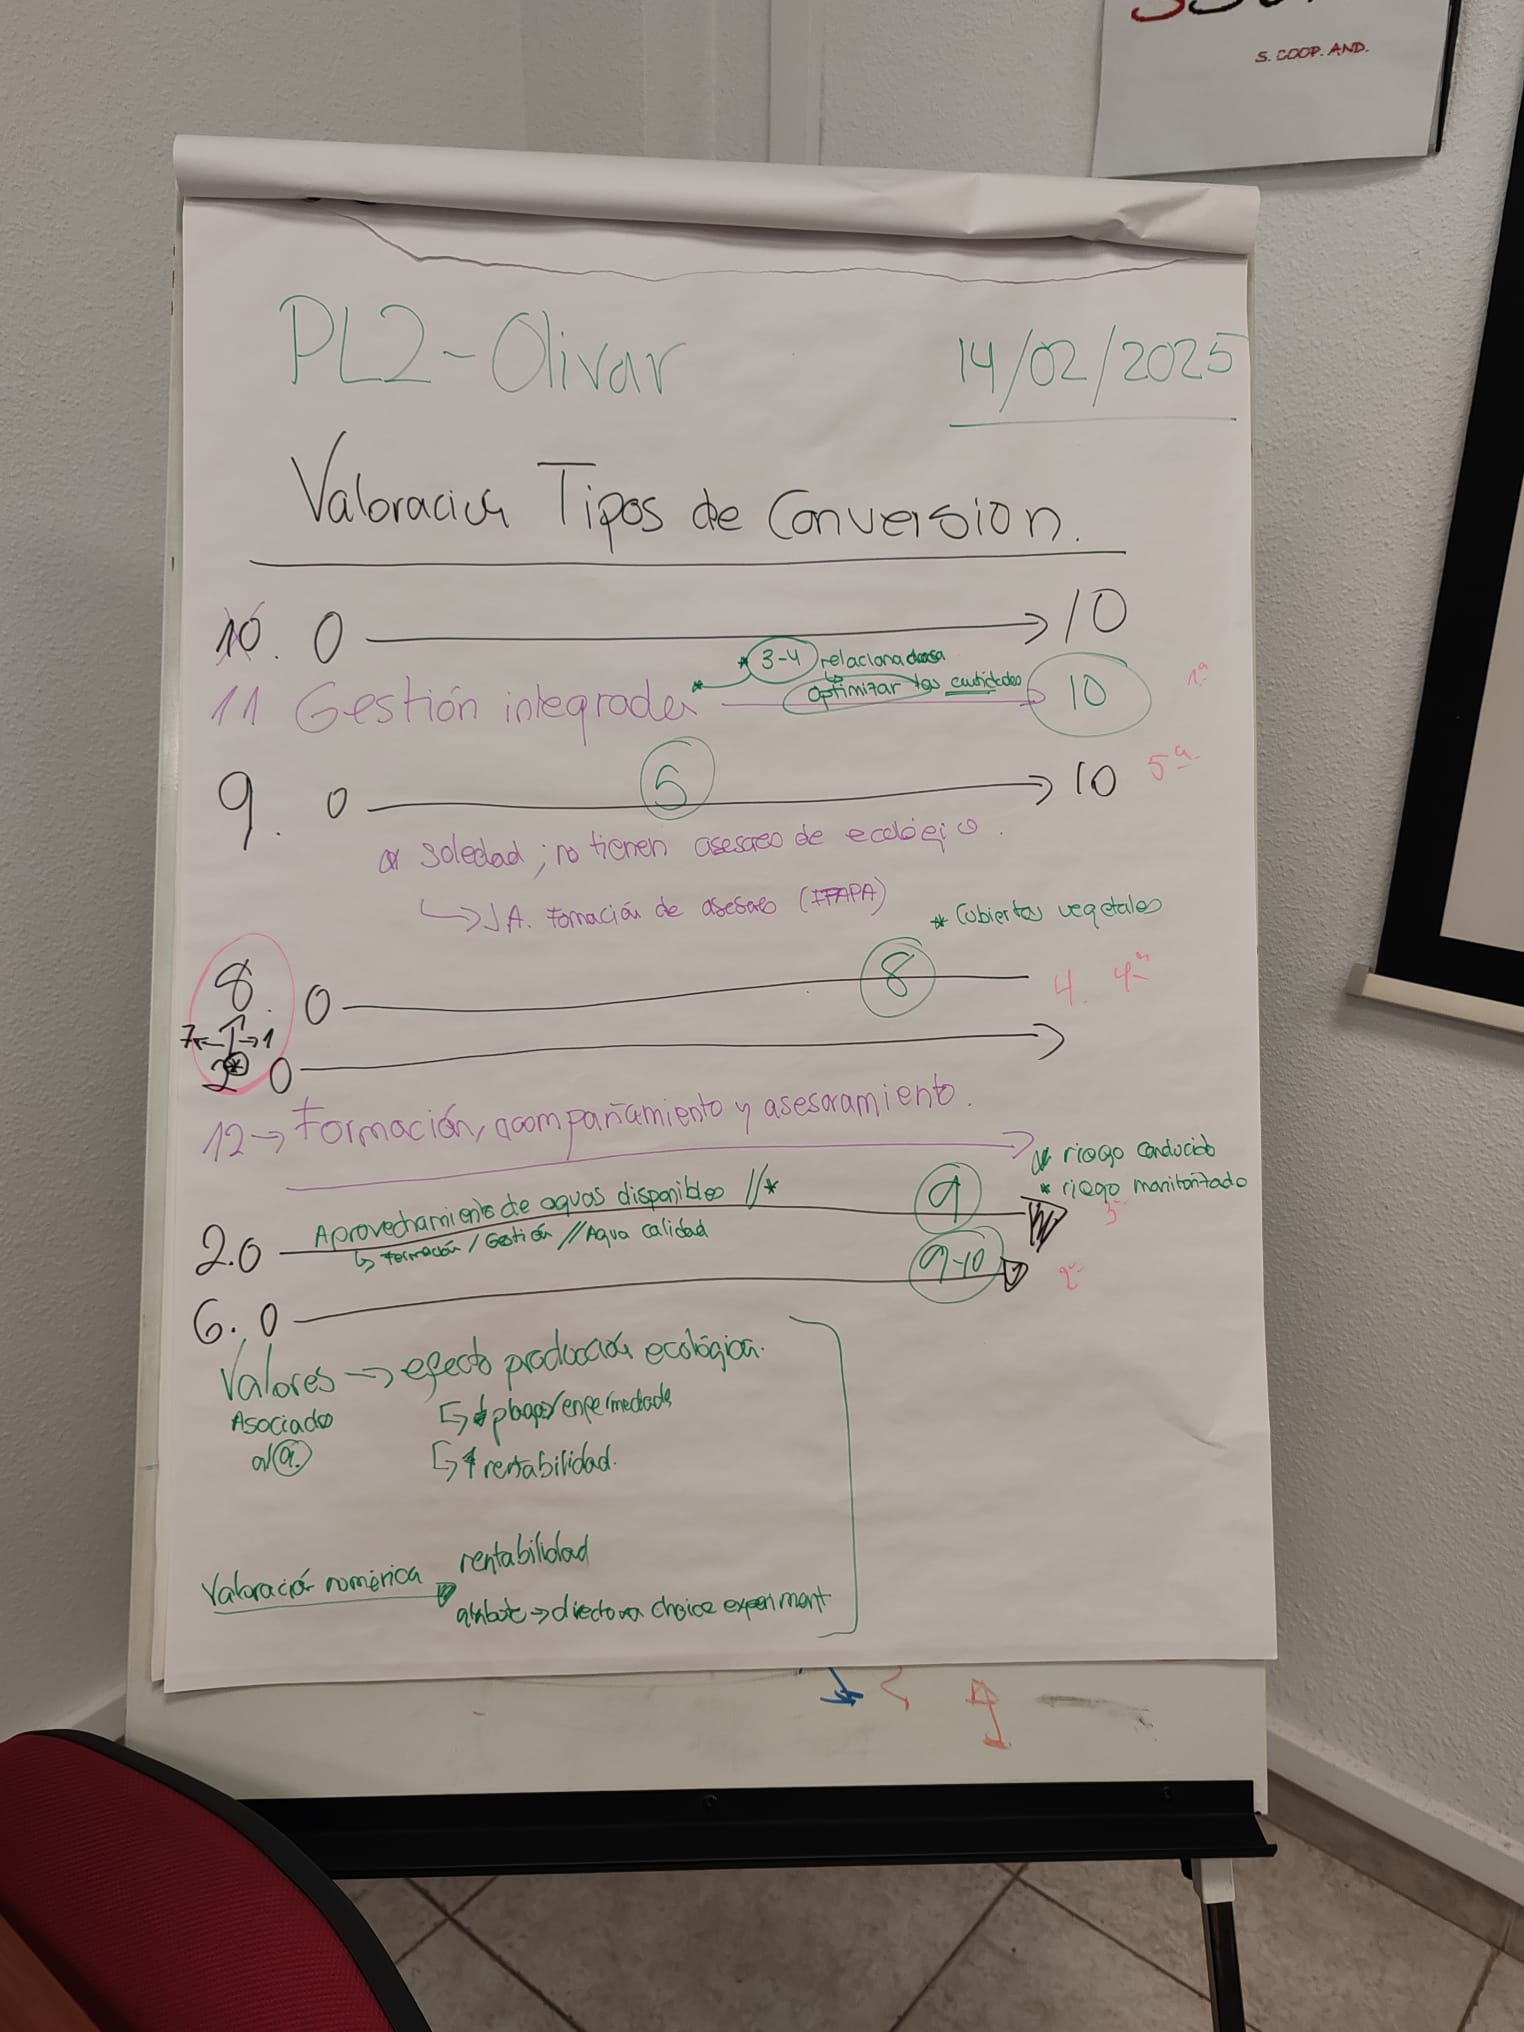 S. COOP. AND.
PL2-Olivar 14/02/2025
Valoración Tipos de Conversion.
10. 0 10
* 3-4 relacionadas
optimizar las cantidades
11 Gestión integrada * 10 1ª
9. 0 5 10 5ª
soledad; no tienen asesores de ecológico.
J.A. Formación de asesores (IFAPA)
* Cubiertas vegetales
8. 0 8 4. 4ª
7 1
2* 0
12 → Formación, acompañamiento y asesoramiento.
* riego conducido
* riego monitorizado
2. 0 Aprovechamiento de aguas disponibles //* 9
Formación / Gestión // Agua calidad
6. 0 9-10 2ª
Valores → efecto producción ecológica.
Asociados ↳ ↓ plagas/enfermedades
a/9.
↳ ↑ rentabilidad.
rentabilidad
Valoración numérica
→ directo a choice experiment